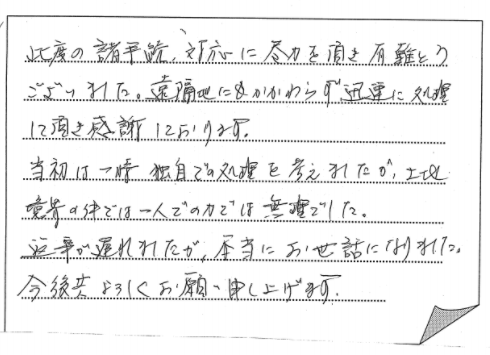 此度の諸手続、対応に尽力を頂き有難とう
ございました。遠隔地にもかかわらず迅速に処理
して頂き感謝しております。
当初は一時独自での処理を考えましたが、土地
境界の件では一人での力では無理でした。
返事が遅れましたが、本当にお世話になりました。
今後共よろしくお願い申し上げます。